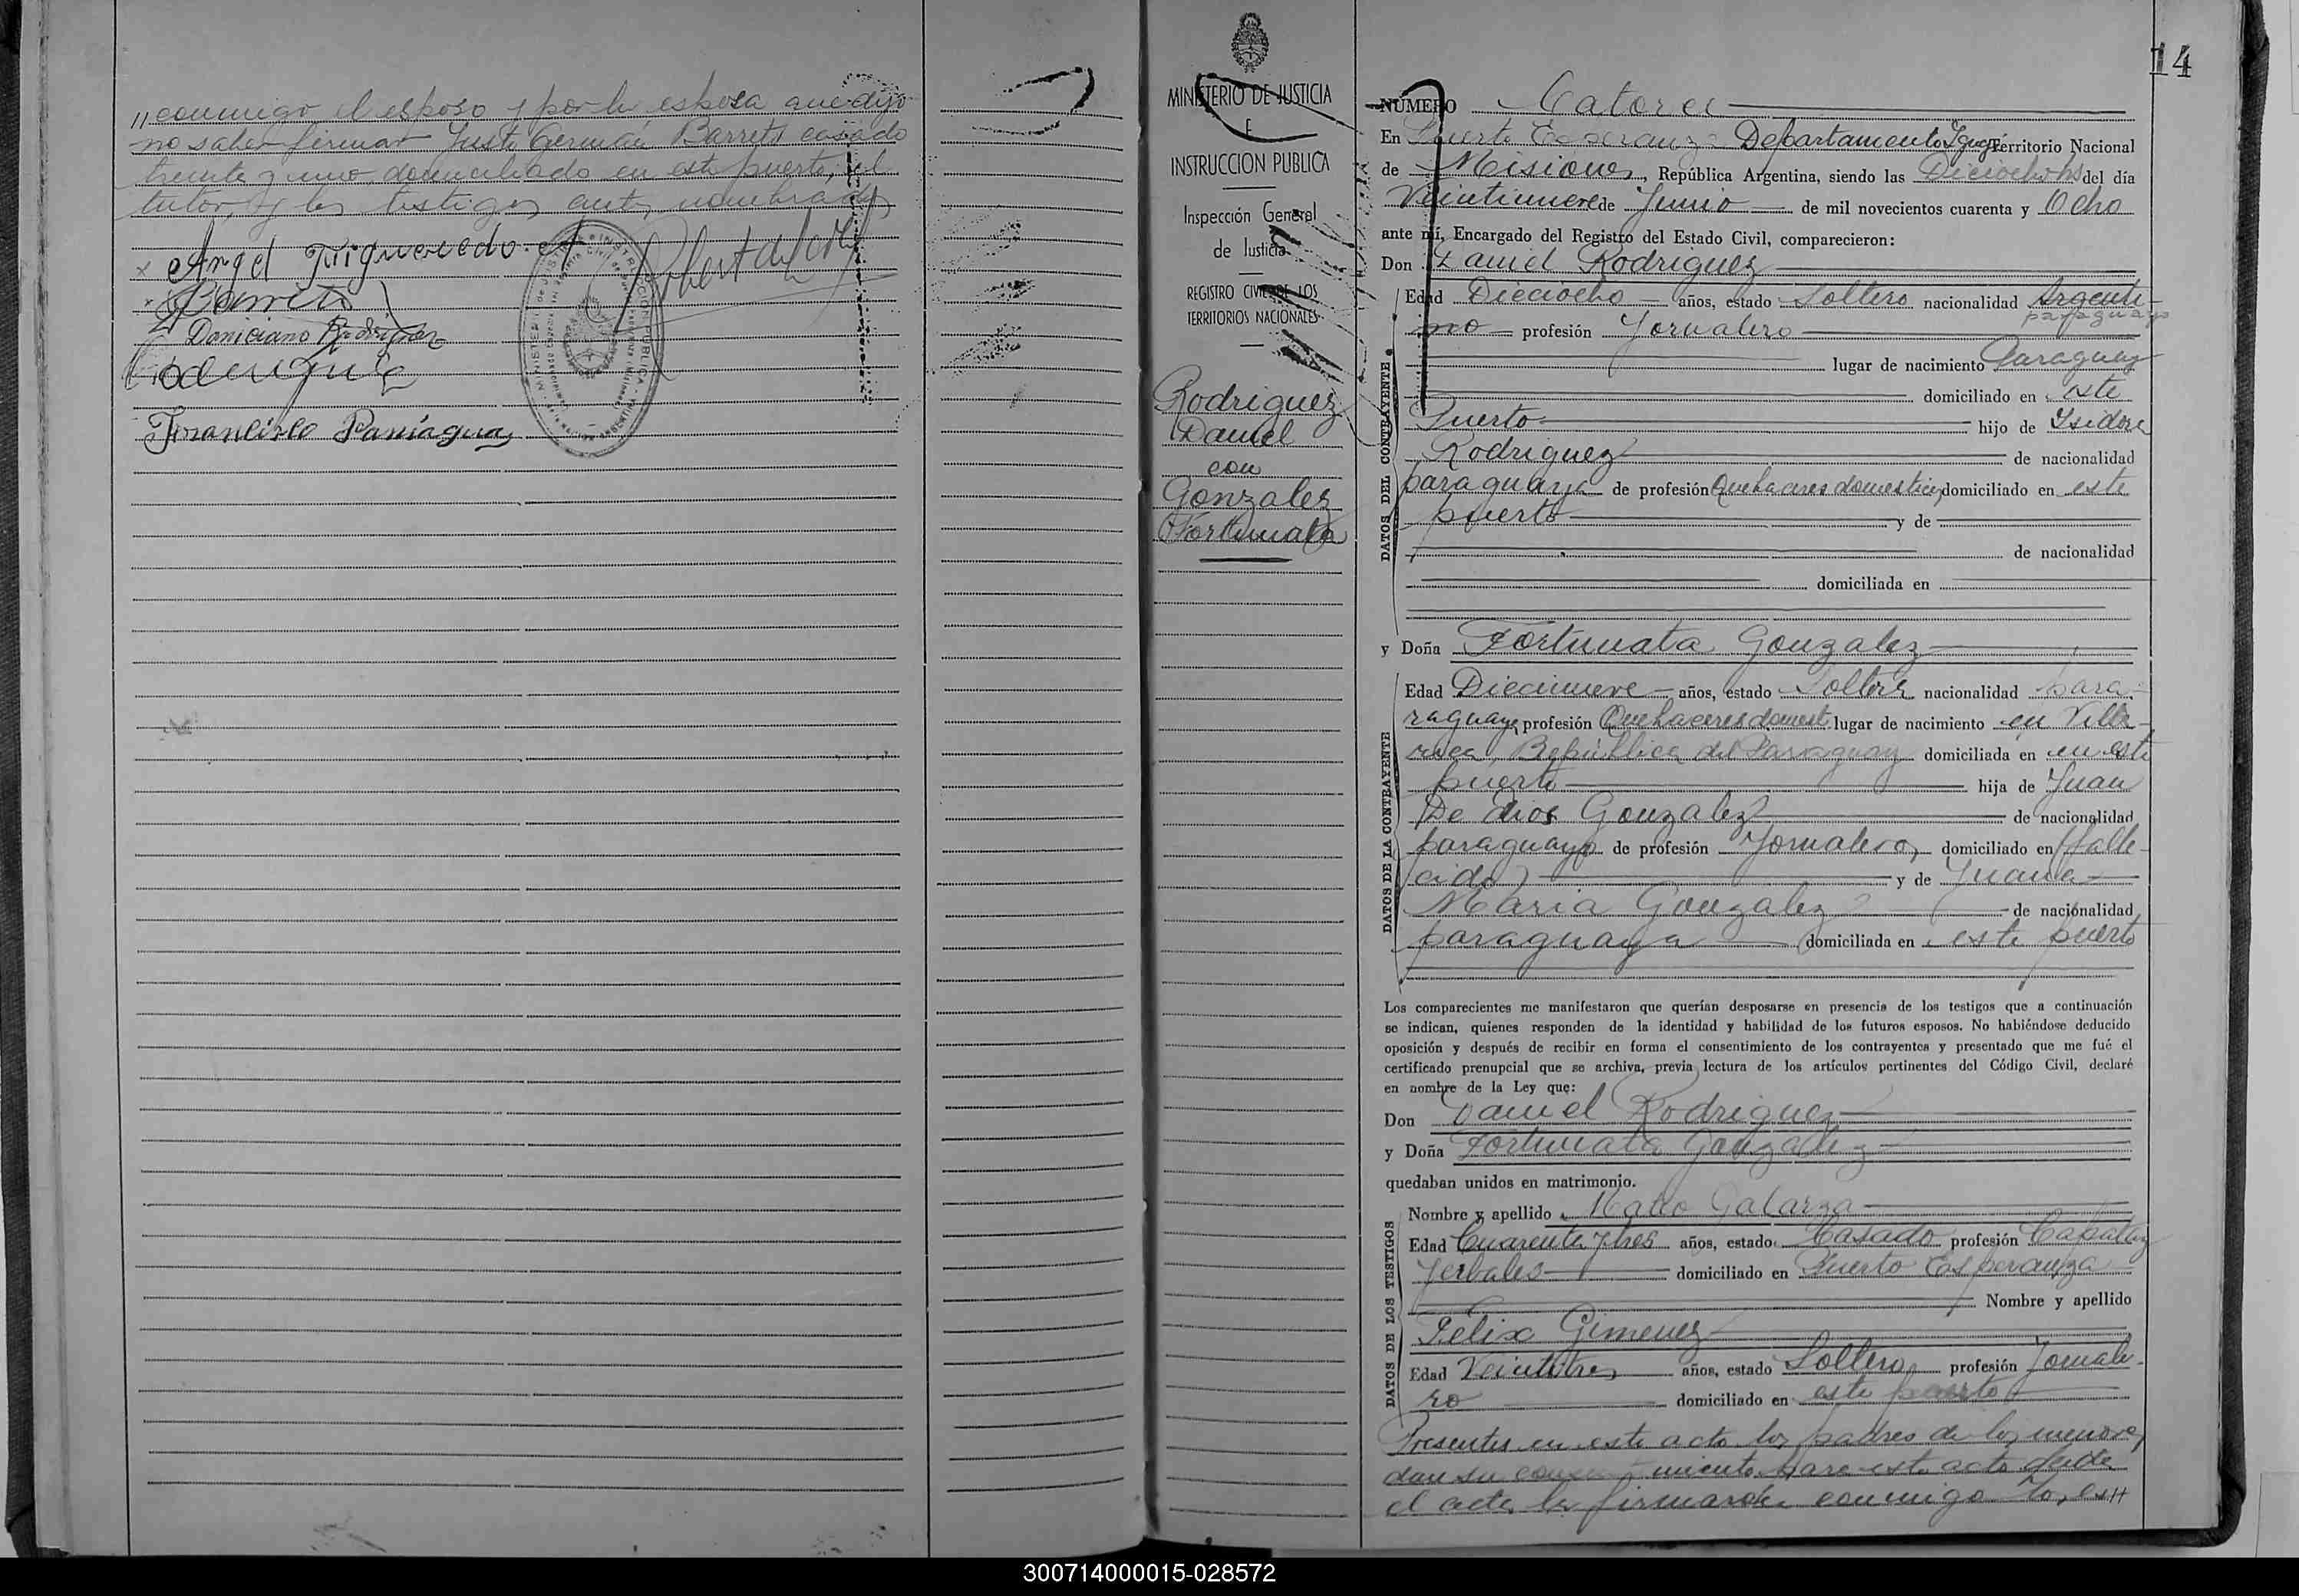 " conmigo el esposo y por la esposa que dijo
no saber firmar Justo Germán Barreto casado
treinta y uno, domiciliado en este puerto, el
tutor, y los testigos antes nombrados
Angel Figueredo
Barreto
Domiciano Rodriguez
Francisco Paniagua
MINISTERIO DE JUSTICIA
E
INSTRUCCION PUBLICA
Inspección General
de Justicia
REGISTRO CIVIL DE LOS
TERRITORIOS NACIONALES
Rodriguez
Daniel
con
Gonzalez
Fortunata
14
NÚMERO Catorce
En Puerto Esperanza Departamento Iguazú Territorio Nacional
de Misiones, República Argentina, siendo las Dieciocho hs del día
Veintinueve de Junio de mil novecientos cuarenta y Ocho
ante mí, Encargado del Registro del Estado Civil, comparecieron:
Don Daniel Rodriguez
DATOS DEL CONTRAYENTE
Edad Dieciocho años, estado Soltero nacionalidad Argenti-
paraguayo
no profesión Jornalero
lugar de nacimiento Paraguay
domiciliado en este
Puerto hijo de Isidora
Rodriguez de nacionalidad
paraguaya de profesión Quehaceres domesticos domiciliado en este
puerto y de
de nacionalidad
domiciliada en
y Doña Fortunata Gonzalez
DATOS DE LA CONTRAYENTE
Edad Diecinueve años, estado Soltera nacionalidad para-
raguaya profesión Quehaceres domest. lugar de nacimiento en Villa-
rica, República del Paraguay domiciliada en en este
puerto hija de Juan
De Dios Gonzalez de nacionalidad
paraguayo de profesión Jornalero, domiciliado en (falle-
cido) y de Juana
Maria Gonzalez de nacionalidad
paraguaya domiciliada en este puerto
Los comparecientes me manifestaron que querían desposarse en presencia de los testigos que a continuación
se indican, quienes responden de la identidad y habilidad de los futuros esposos. No habiéndose deducido
oposición y después de recibir en forma el consentimiento de los contrayentes y presentado que me fué el
certificado prenupcial que se archiva, previa lectura de los artículos pertinentes del Código Civil, declaré
en nombre de la Ley que:
Don Daniel Rodriguez
y Doña Fortunata Gonzalez
quedaban unidos en matrimonio.
DATOS DE LOS TESTIGOS
Nombre y apellido Galarza
Edad Cuarenta y tres años, estado Casado profesión Capataz
Yerbales domiciliado en Puerto Esperanza
Nombre y apellido
Felix Gimenez
Edad Veintitres años, estado Soltero profesión Jornale-
ro domiciliado en este puerto
Presentes en este acto los padres de los menores,
dan su consentimiento para este acto. Leida
el acta, la firmaron conmigo
300714000015-028572